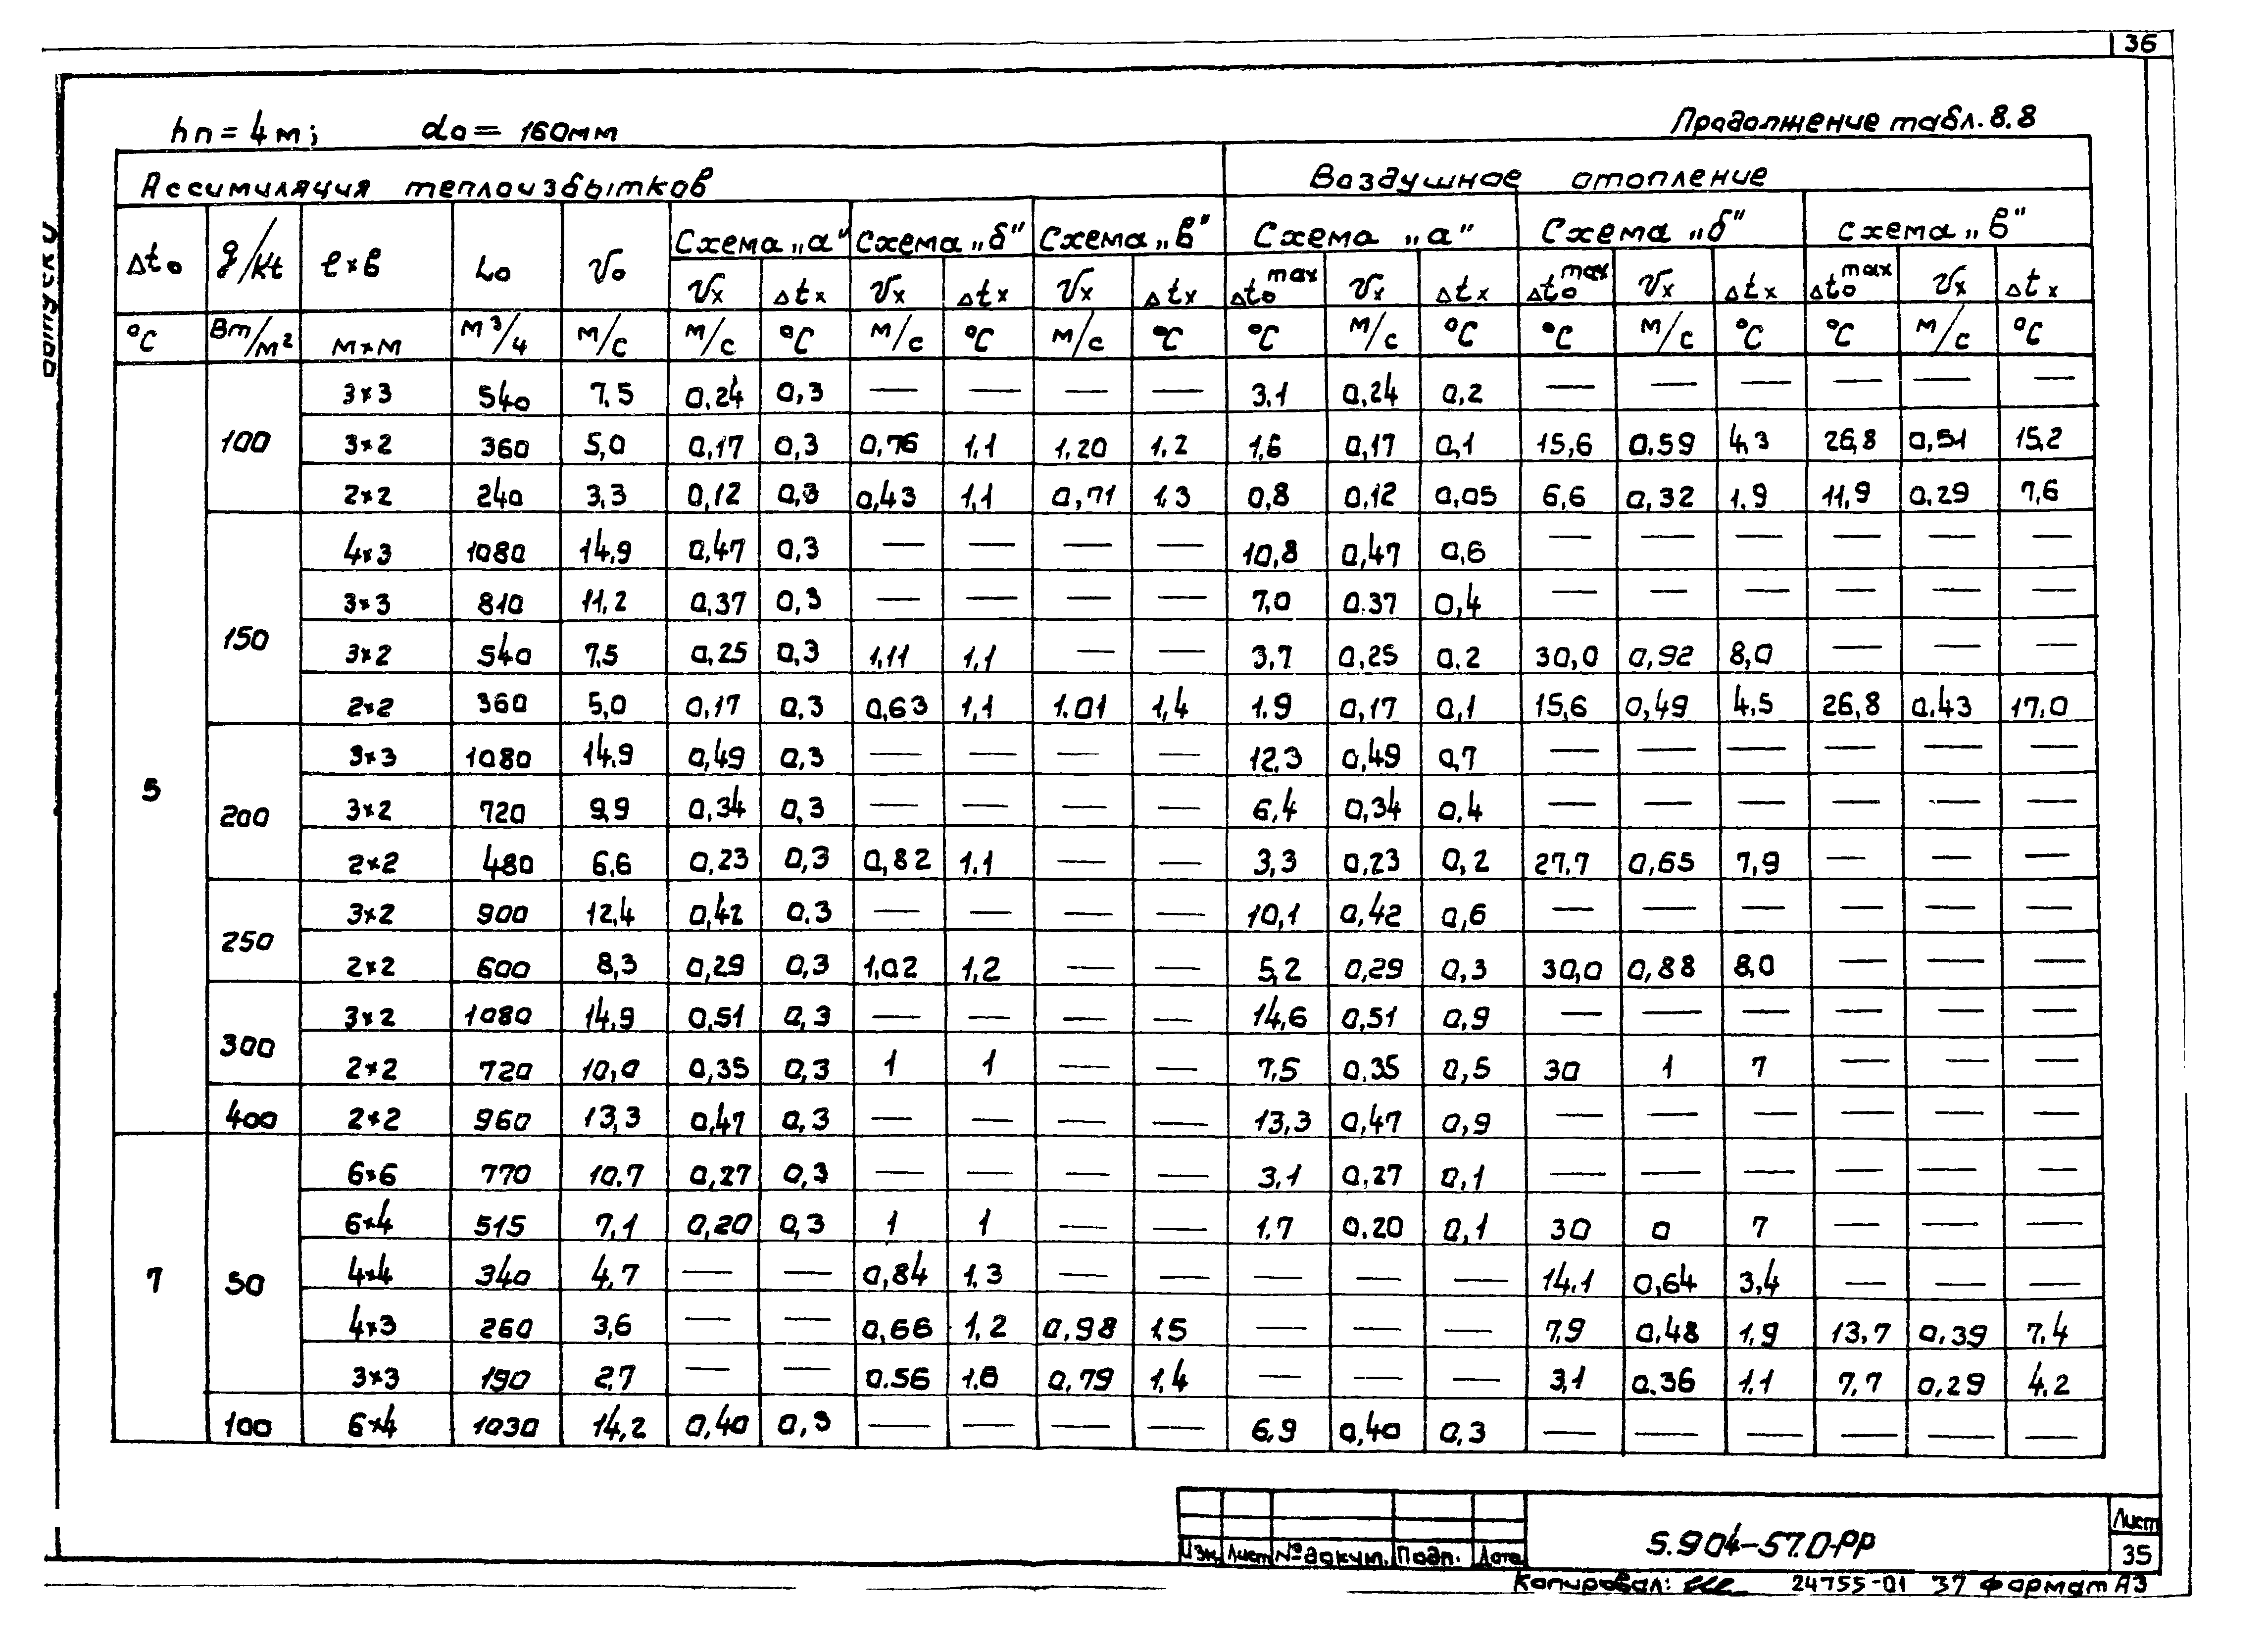 36
hп = 4 м; do = 160мм
Продолжение табл. 8.8
Ассимиляция теплоизбытков Воздушное отопление
Δto q/Kt ℓ×в Lo Vo Схема „а" Схема „б" Схема „в" Схема „а" Схема „б" Схема „в"
Vx Δtx Vx Δtx Vx Δtx Δto max Vx Δtx Δto max Vx Δtx Δto max Vx Δtx
°C Вт/м² м×м м³/ч м/с м/с °C м/с °C м/с °C °C м/с °C °C м/с °C °C м/с °C
5 100 3×3 540 7,5 0,24 0,3 — — — — 3,1 0,24 0,2 — — — — — —
3×2 360 5,0 0,17 0,3 0,76 1,1 1,20 1,2 1,6 0,17 0,1 15,6 0,59 4,3 26,8 0,51 15,2
2×2 240 3,3 0,12 0,3 0,43 1,1 0,71 1,3 0,8 0,12 0,05 6,6 0,32 1,9 11,9 0,29 7,6
150 4×3 1080 14,9 0,47 0,3 — — — — 10,8 0,47 0,6 — — — — — —
3×3 810 11,2 0,37 0,3 — — — — 7,0 0,37 0,4 — — — — — —
3×2 540 7,5 0,25 0,3 1,11 1,1 — — 3,7 0,25 0,2 30,0 0,92 8,0 — — —
2×2 360 5,0 0,17 0,3 0,63 1,1 1,01 1,4 1,9 0,17 0,1 15,6 0,49 4,5 26,8 0,43 17,0
200 3×3 1080 14,9 0,49 0,3 — — — — 12,3 0,49 0,7 — — — — — —
3×2 720 9,9 0,34 0,3 — — — — 6,4 0,34 0,4 — — — — — —
2×2 480 6,6 0,23 0,3 0,82 1,1 — — 3,3 0,23 0,2 27,7 0,65 7,9 — — —
250 3×2 900 12,4 0,42 0,3 — — — — 10,1 0,42 0,6 — — — — — —
2×2 600 8,3 0,29 0,3 1,02 1,2 — — 5,2 0,29 0,3 30,0 0,88 8,0 — — —
300 3×2 1080 14,9 0,51 0,3 — — — — 14,6 0,51 0,9 — — — — — —
2×2 720 10,0 0,35 0,3 1 1 — — 7,5 0,35 0,5 30 1 7 — — —
400 2×2 960 13,3 0,47 0,3 — — — — 13,3 0,47 0,9 — — — — — —
7 50 6×6 770 10,7 0,27 0,3 — — — — 3,1 0,27 0,1 — — — — — —
6×4 515 7,1 0,20 0,3 1 1 — — 1,7 0,20 0,1 30 0 7 — — —
4×4 340 4,7 — — 0,84 1,3 — — — — — 14,1 0,64 3,4 — — —
4×3 260 3,6 — — 0,66 1,2 0,98 1,5 — — — 7,9 0,48 1,9 13,7 0,39 7,4
3×3 190 2,7 — — 0,56 1,8 0,79 1,4 — — — 3,1 0,36 1,1 7,7 0,29 4,2
100 6×4 1030 14,2 0,40 0,3 — — — — 6,9 0,40 0,3 — — — — — —
Изм. Лист № докум. Подп. Дата
5.904-57.0-РР
Лист
35
Копировал: 24755-01 37 Формат А3